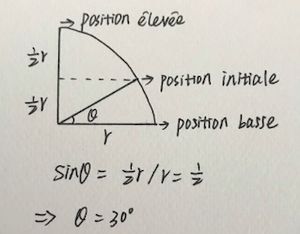 position êlevée
½r
position initiale
½r
θ
r
position basse
sinθ = ½r / r = ½
⇒ θ = 30°